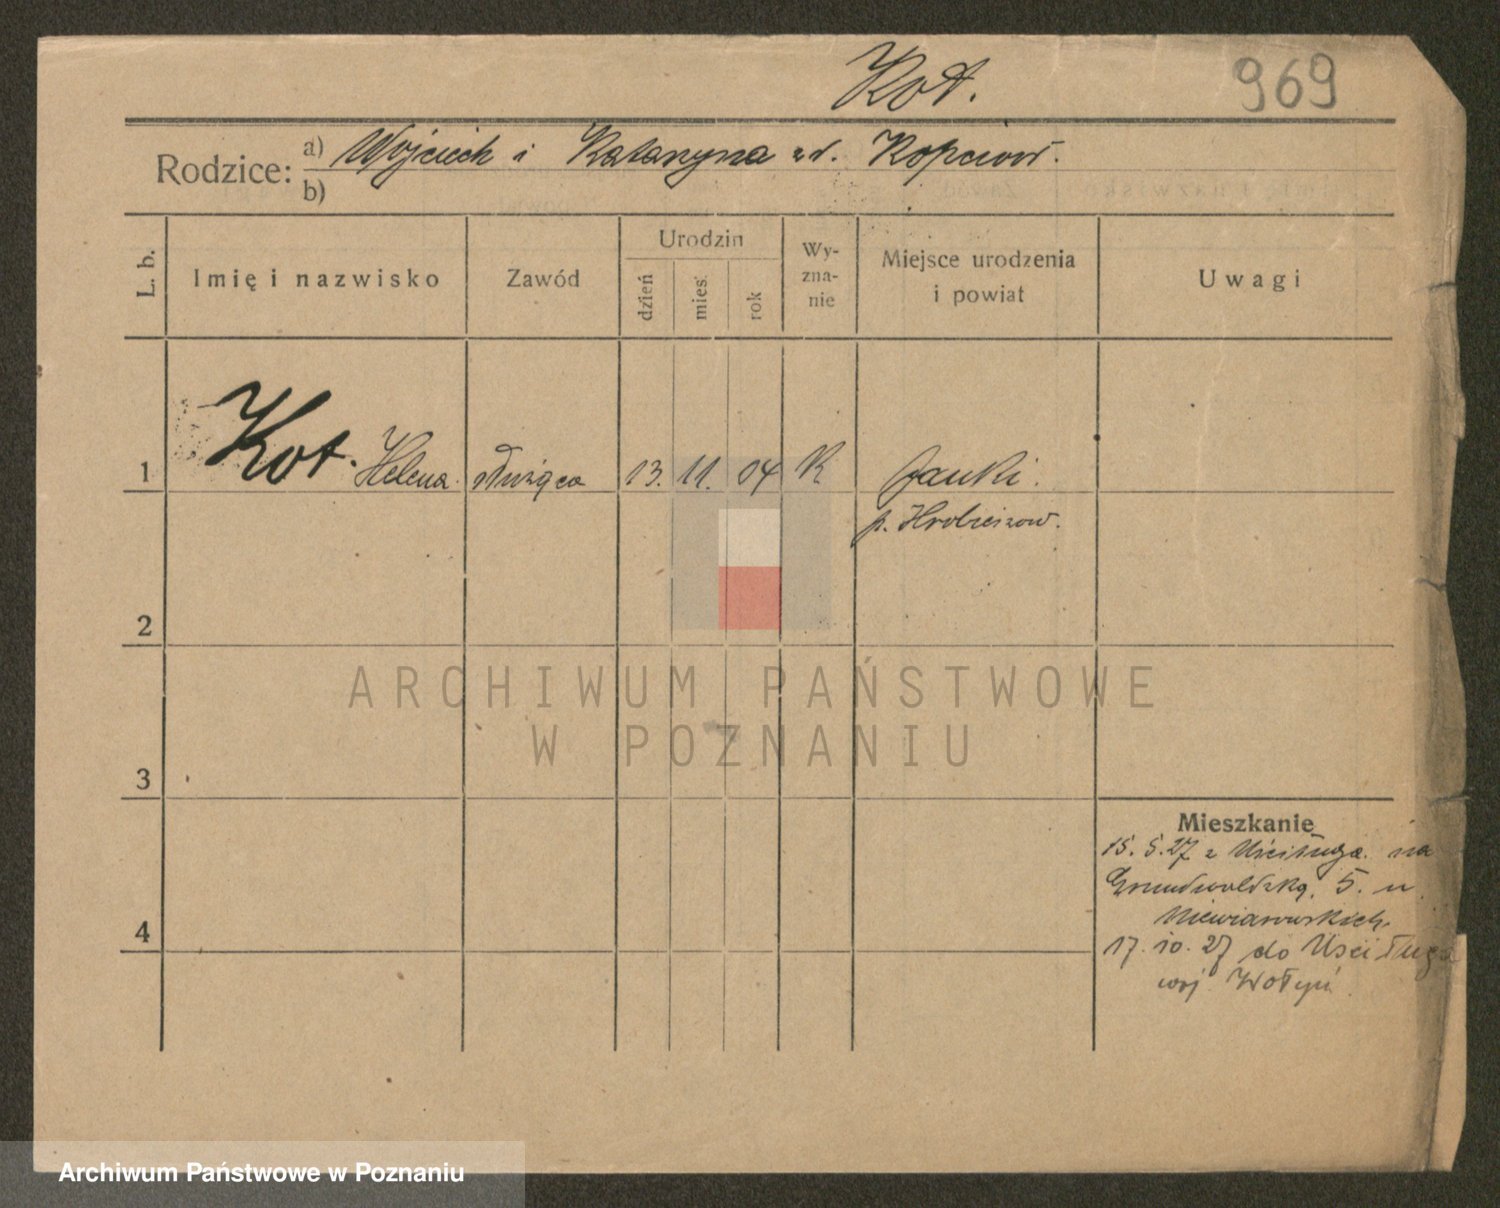 Kot.
969
Rodzice:
a) Wojciech i Katarzyna zd. Kopciow.
b)
L. b.
Imię i nazwisko
Zawód
Urodzin
dzień
mieś.
rok
Wy-
zna-
nie
Miejsce urodzenia
i powiat
Uwagi
1 Kot. Helena. służąca 13. 11. 04 K Janki.
p. Hrobieszow.
2
ARCHIWUM PAŃSTWOWE
W POZNANIU
3
Mieszkanie
15. 5. 27 z Uściługa. na
Grundwaldzką. 5. u
Niewiarowskich.
4
17. 10. 27 do Uściługa
woj. Wołyń
Archiwum Państwowe w Poznaniu